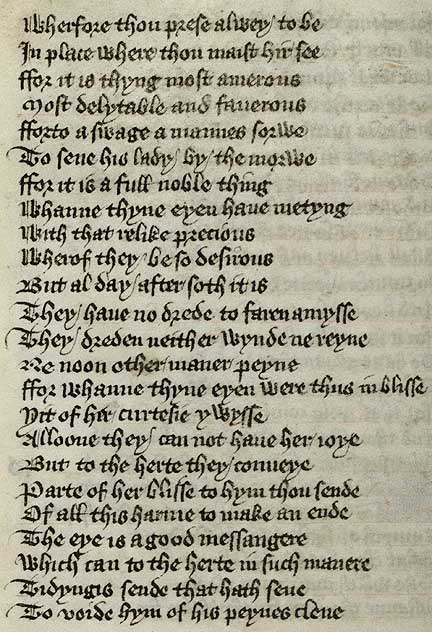 Wherfore thou prese alwey / to be
In place where thou maist hir see
ffor it is thyng most amerous
Most delytable and fauerous
fforto a swage a mannes sorwe
To sene his lady / by / the morwe
ffor it is a full noble thing
Whanne thyne eyen haue metyng
With that relike precious
Wherof they / be so desirous
But al day / after soth it is
They / haue no drede to faren amysse
They / dreden neither wynde ne reyne
Ne noon other maner peyne
ffor whanne thyne eyen were thus in blisse
Yit of hir curtesie ywysse
Alloone they / can not haue her ioye
But to the herte they / conueye
Parte of her blisse to hym thou sende
Of all this harme to make an ende
The eye is a good messangere
Which can to the herte in such manere
Tidyngis sende that hath sene
To voide hym of his peynes clene